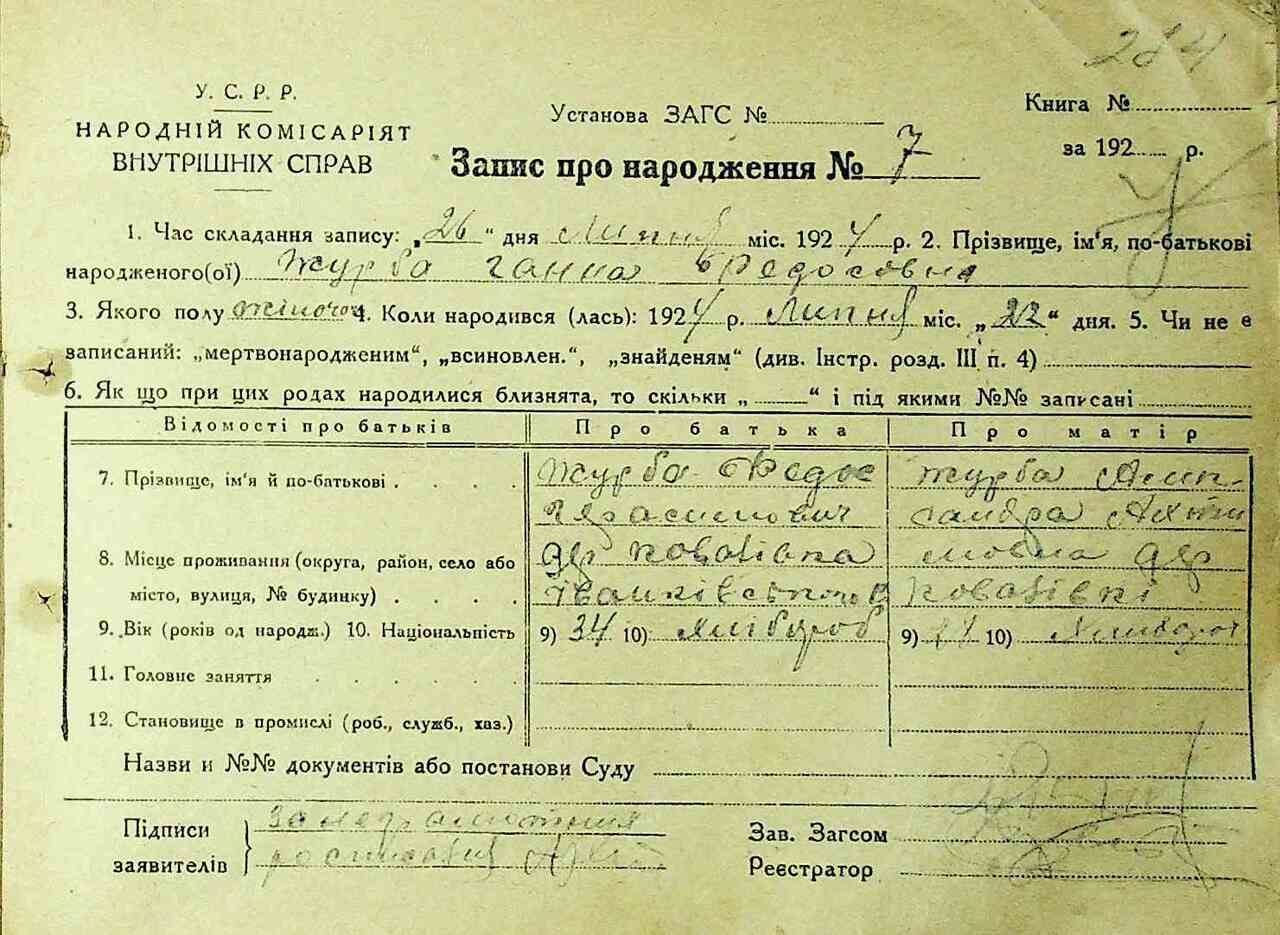 284
У. С. Р. Р.
НАРОДНІЙ КОМІСАРІЯТ
ВНУТРІШНІХ СПРАВ
Установа ЗАГС №
Книга №
за 192 р.
Запис про народження № 7
1. Час складання запису: „26“ дня Липня міс. 1924 р. 2. Прізвище, ім'я, по-батькові
народженого(ої) Журба Ганна Федосовна
3. Якого полу жіночого 4. Коли народився (лась): 1924 р. Липня міс. „22“ дня. 5. Чи не є
записаний: „мертвонародженим“, „всиновлен.“, „знайденям“ (див. Інстр. розд. III п. 4)
6. Як що при цих родах народилися близнята, то скільки „ “ і під якими №№ записані
Відомості про батьків Про батька Про матір
7. Прізвище, ім'я й по-батькові . . . . Журба Федос Журба Алик-
Герасимович сандра
8. Місце проживання (округа, район, село або дер Ковалівка мовна дер
місто, вулиця, № будинку) . . . . Іванківського В Ковалівкі
9. Вік (років од народж.) 10. Національність 9) 34 10) Хлібороб 9) 10) Хлібороб
11. Головне заняття . . . . . .
12. Становище в промислі (роб., служб., хаз.)
Назви и №№ документів або постанови Суду
Підписи заявителів
за неграмотния
росписался
Зав. Загсом
Реєстратор